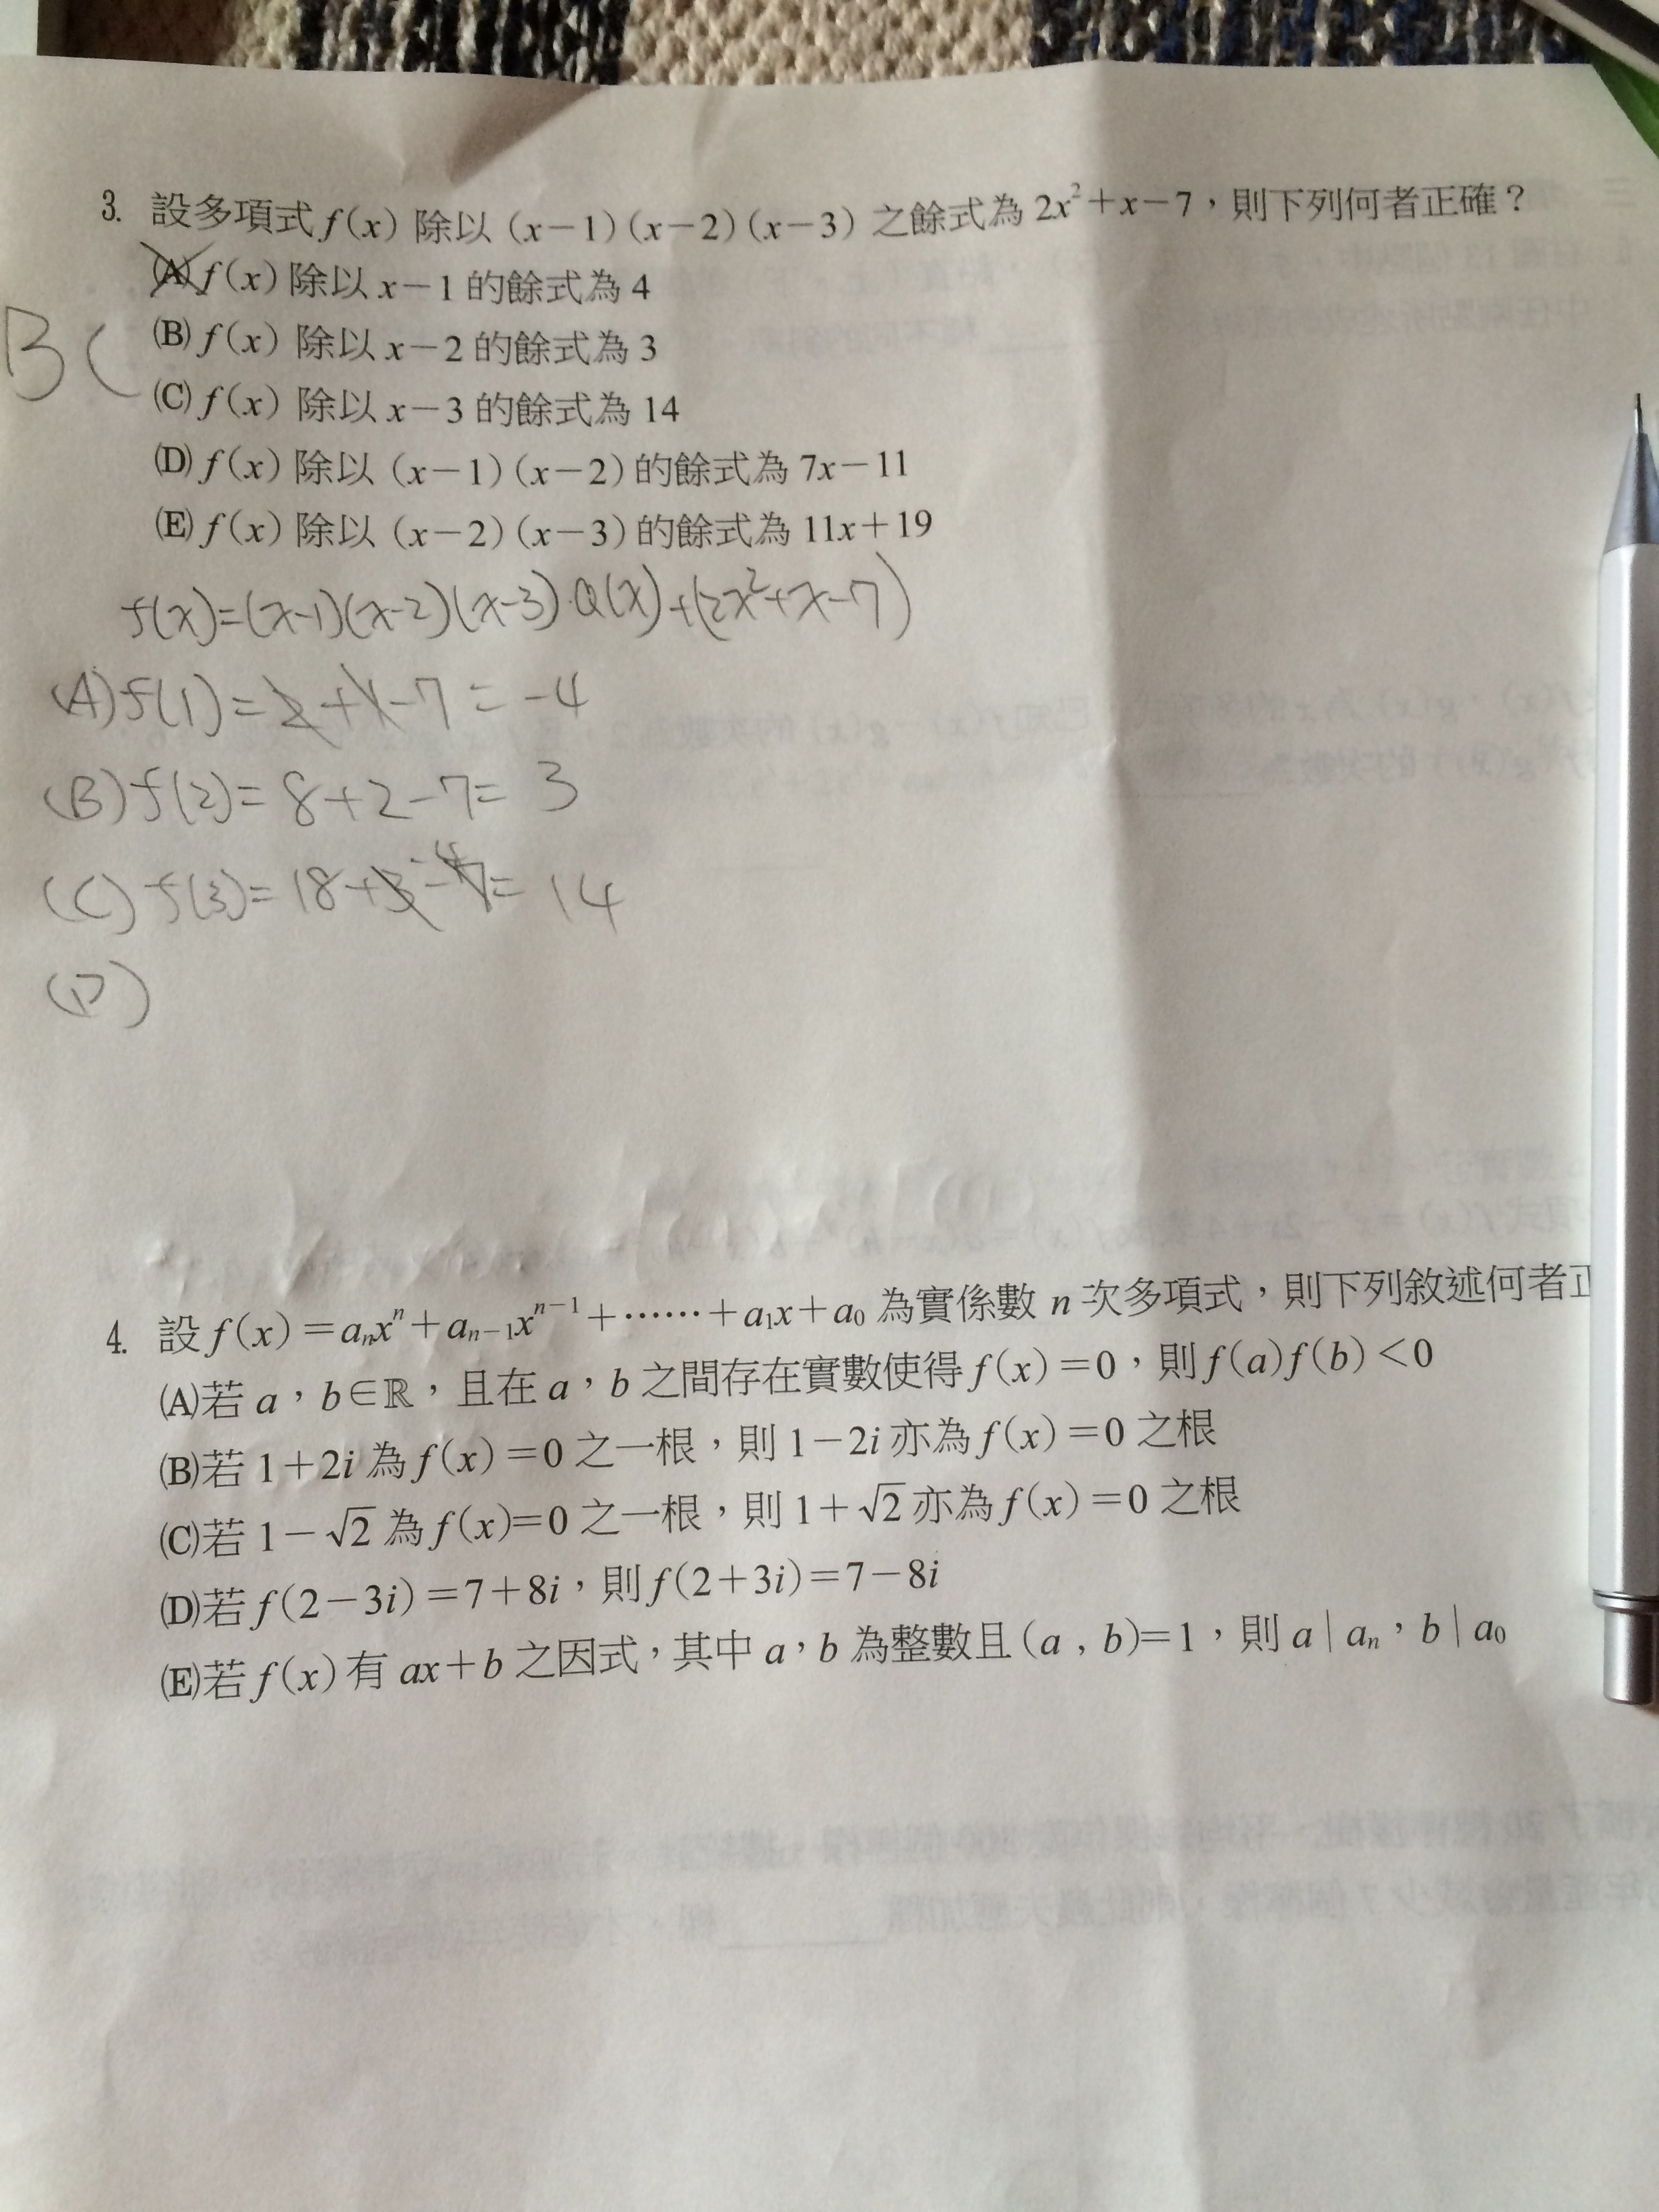 3. 設多項式 f(x) 除以 (x-1)(x-2)(x-3) 之餘式為 2x²+x-7,則下列何者正確?
(A) f(x) 除以 x-1 的餘式為 4
(B) f(x) 除以 x-2 的餘式為 3
BC
(C) f(x) 除以 x-3 的餘式為 14
(D) f(x) 除以 (x-1)(x-2) 的餘式為 7x-11
(E) f(x) 除以 (x-2)(x-3) 的餘式為 11x+19
f(x)=(x-1)(x-2)(x-3)·Q(x)+(2x²+x-7)
(A) f(1)=2+1-7=-4
(B) f(2)=8+2-7=3
(C) f(3)=18+3-7=14
-4
(D)
4. 設 f(x)=aₙxⁿ+aₙ₋₁xⁿ⁻¹+……+a₁x+a₀ 為實係數 n 次多項式,則下列敘述何者正
(A)若 a,b∈ℝ,且在 a,b 之間存在實數使得 f(x)=0,則 f(a)f(b)<0
(B)若 1+2i 為 f(x)=0 之一根,則 1-2i 亦為 f(x)=0 之根
(C)若 1-√2 為 f(x)=0 之一根,則 1+√2 亦為 f(x)=0 之根
(D)若 f(2-3i)=7+8i,則 f(2+3i)=7-8i
(E)若 f(x) 有 ax+b 之因式,其中 a,b 為整數且 (a,b)=1,則 a|aₙ,b|a₀